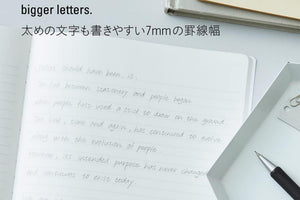 bigger letters.
太めの文字も書きやすい7mmの罫線幅
should have been, is,
between stationery and people began
when people first used a stick to draw on the ground
and again, has continued to evolve
along with the evolution of people
However, its intended purpose has never changed
and continues so even today